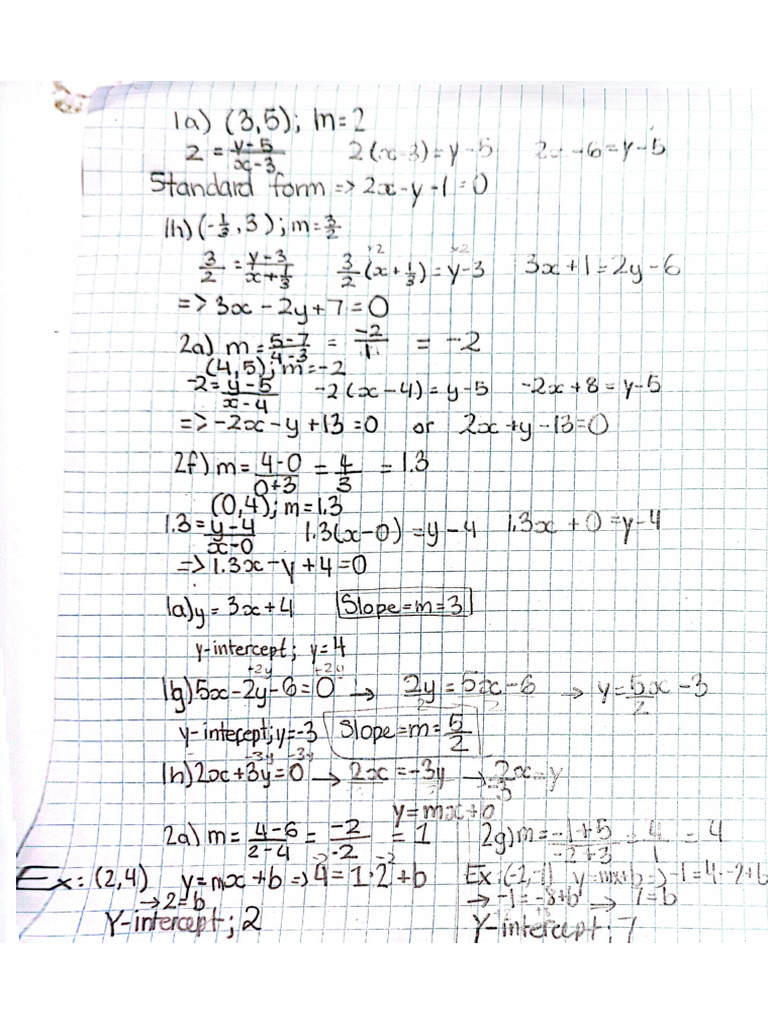 1a) (3,5); m=2
2 = y-5/x-3   2(x-3)=y-5   2x-6=y-5
Standard form => 2x-y-1=0
1h) (-1/3, 3); m=3/2
3/2 = y-3/x+1/3   ×2 3/2(x+1/3)=y-3 ×2   3x+1=2y-6
=> 3x-2y+7=0
2a) m = 5-7/4-3 = -2/1 = -2
(4,5); m=-2
-2 = y-5/x-4   -2(x-4)=y-5   -2x+8=y-5
=> -2x-y+13=0 or 2x+y-13=0
2f) m = 4-0/0+3 = 4/3 = 1.3
(0,4); m=1.3
1.3 = y-4/x-0   1.3(x-0)=y-4   1.3x+0=y-4
=> 1.3x-y+4=0
1a) y=3x+4   Slope=m=3
y-intercept; y=4
+2y +2y
1g) 5x-2y-6=0 → 2y/2 = 5x-6/2 → y=5x/2-3
y-intercept; y=-3   Slope=m=5/2
-3y -3y
1h) 2x+3y=0 → 2x=-3y → 2x/-3=y
y=mx+b
2a) m = 4-6/2-4 = -2/-2 = 1   2g) m = -1+5/-2+3 = 4/1 = 4
-2 -2
Ex: (2,4) y=mx+b => 4=1·2+b   Ex: (-2,-1) y=mx+b => -1=4·-2+b
→ 2=b   → -1=-8+b → 7=b
Y-intercept; 2   Y-intercept; 7